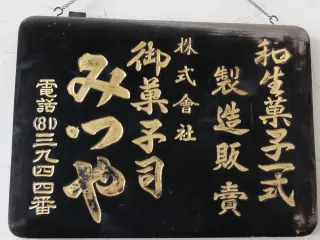 和生菓子一式
製造販賣
株式會社
御菓子司
みつや
電話(81)三九四四番